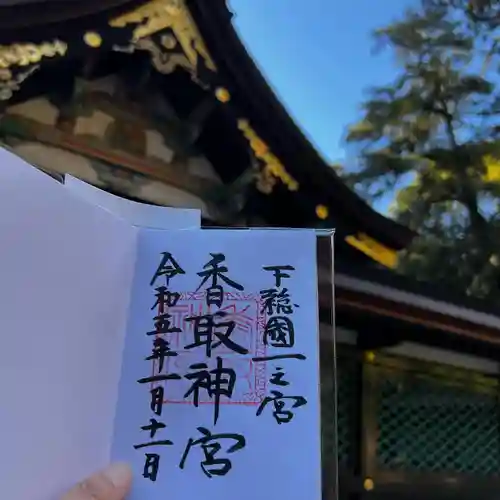 下総国一之宮
香取神宮
令和五年一月十一日